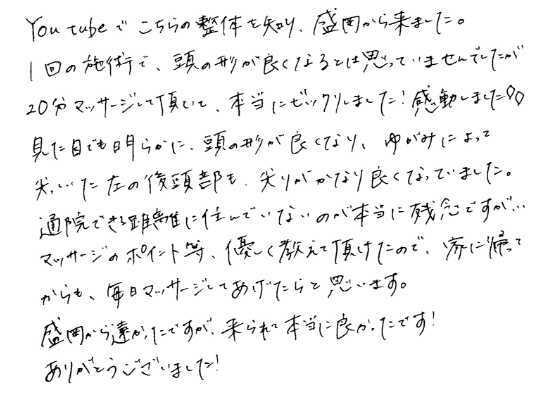 Youtubeで こちらの整体を知り、盛岡から来ました。
1回の施術で、頭の形が良くなるとは思っていませんでしたが
20分マッサージして頂いて、本当にビックリしました!感動しました♡♡
見た目でも明らかに、頭の形が良くなり、ゆがみによって
尖っていた左の後頭部も、尖りがかなり良くなっていました。
通院できる距離に住んでいないのが本当に残念ですが…
マッサージのポイント等、優しく教えて頂けたので、家に帰って
からも、毎日マッサージしてあげたらと思います。
盛岡から遠かったですが、来られて本当に良かったです!
ありがとうございました!